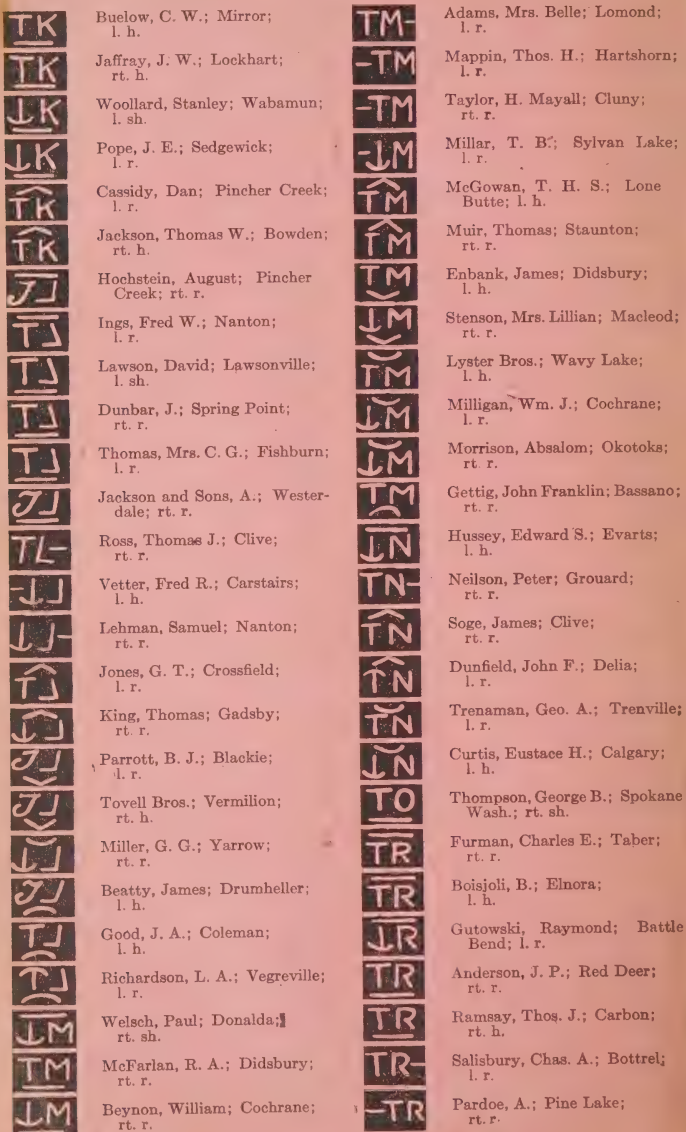 TK Buelow, C. W.; Mirror;
l. h.
TK Jaffray, J. W.; Lockhart;
rt. h.
K Woollard, Stanley; Wabamun;
l. sh.
K Pope, J. E.; Sedgewick;
l. r.
TK Cassidy, Dan; Pincher Creek;
l. r.
TK Jackson, Thomas W.; Bowden;
rt. h.
Hochstein, August; Pincher
Creek; rt. r.
Ings, Fred W.; Nanton;
l. r.
Lawson, David; Lawsonville;
l. sh.
Dunbar, J.; Spring Point;
rt. r.
Thomas, Mrs. C. G.; Fishburn;
l. r.
Jackson and Sons, A.; Wester-
dale; rt. r.
TL- Ross, Thomas J.; Clive;
rt. r.
Vetter, Fred R.; Carstairs;
l. h.
Lehman, Samuel; Nanton;
rt. r.
Jones, G. T.; Crossfield;
l. r.
King, Thomas; Gadsby;
rt. r.
Parrott, B. J.; Blackie;
l. r.
Tovell Bros.; Vermilion;
rt. h.
Miller, G. G.; Yarrow;
rt. r.
Beatty, James; Drumheller;
l. h.
Good, J. A.; Coleman;
l. h.
Richardson, L. A.; Vegreville;
l. r.
M Welsch, Paul; Donalda;
rt. sh.
TM McFarlan, R. A.; Didsbury;
rt. r.
M Beynon, William; Cochrane;
rt. r.
TM- Adams, Mrs. Belle; Lomond;
l. r.
-TM Mappin, Thos. H.; Hartshorn;
l. r.
-TM Taylor, H. Mayall; Cluny;
rt. r.
M Millar, T. B.; Sylvan Lake;
l. r.
TM McGowan, T. H. S.; Lone
Butte; l. h.
TM Muir, Thomas; Staunton;
rt. r.
TM Enbank, James; Didsbury;
l. h.
M Stenson, Mrs. Lillian; Macleod;
rt. r.
TM Lyster Bros.; Wavy Lake;
l. h.
M Milligan, Wm. J.; Cochrane;
l. r.
M Morrison, Absalom; Okotoks;
rt. r.
TM Gettig, John Franklin; Bassano;
rt. r.
N Hussey, Edward S.; Evarts;
l. h.
TN- Neilson, Peter; Grouard;
rt. r.
TN Soge, James; Clive;
rt. r.
TN Dunfield, John F.; Delia;
l. r.
TN Trenaman, Geo. A.; Trenville;
l. r.
N Curtis, Eustace H.; Calgary;
l. h.
TO Thompson, George B.; Spokane
Wash.; rt. sh.
TR Furman, Charles E.; Taber;
rt. r.
TR Boisjoli, B.; Elnora;
l. h.
R Gutowski, Raymond; Battle
Bend; l. r.
TR Anderson, J. P.; Red Deer;
rt. r.
TR Ramsay, Thos. J.; Carbon;
rt. h.
TR- Salisbury, Chas. A.; Bottrel;
l. r.
-TR Pardoe, A.; Pine Lake;
rt. r.